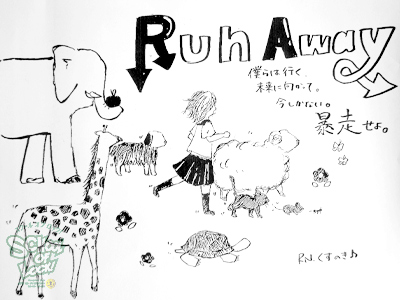 Run Away
僕らは行く、
未来に向かって。
今しかない。
暴走せよ。
R.N. くすのきわ